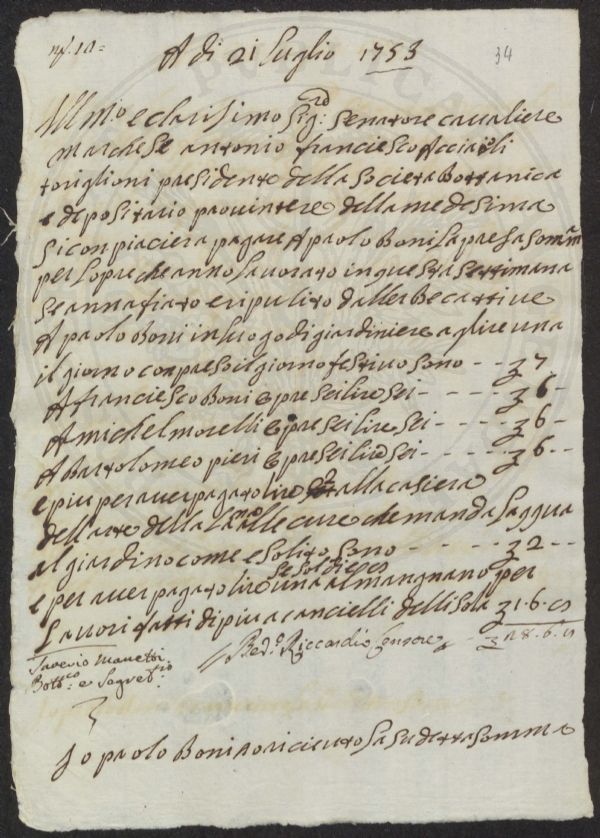 A di 21 luglio 1753
34
Ill.mo e clarisimo Sig:re Senatore cavaliere
Marchese antonio franciesco Acciaioli
toriglioni presidente della Societa Bottanica
e depositario provintere della medesima
Si conpiaciera pagare A paolo Boni la presa som.ma
per lopre che anno lavorato in questa Settimana
Se annafiato e ripulito dallerbe cattive
A paolo Boni in luogo di giardiniere a glire una
il giorno conpreso il giorno festivo sono - - 7
A franciesco Boni 6 pre sei lire sei - - - - 6 -
A michel morelli 6 pre sei lire sei - - - - 6 -
A Bartolomeo pieri 6 pre sei lire sei - - - - 6 -
e piu per aver pagato lire 2 alla casiera
dellarte della lana alle cure che manda laqgua
al giardino come e solito sono - - - - 2 -
e per aver pagato lire una e soldi al mangnano per
lavori fatti di piu a cancielli dellisola 1.6.
Saverio Manetti Red.o Riccardi Censore 28.6.
Bott.co e Segret.rio
Io paolo Boni o riceuto la sudetta somma